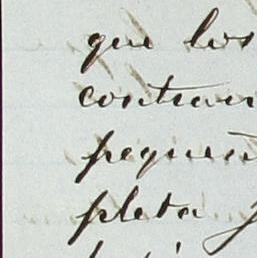 que los
contrar
pequeñ
pleta y